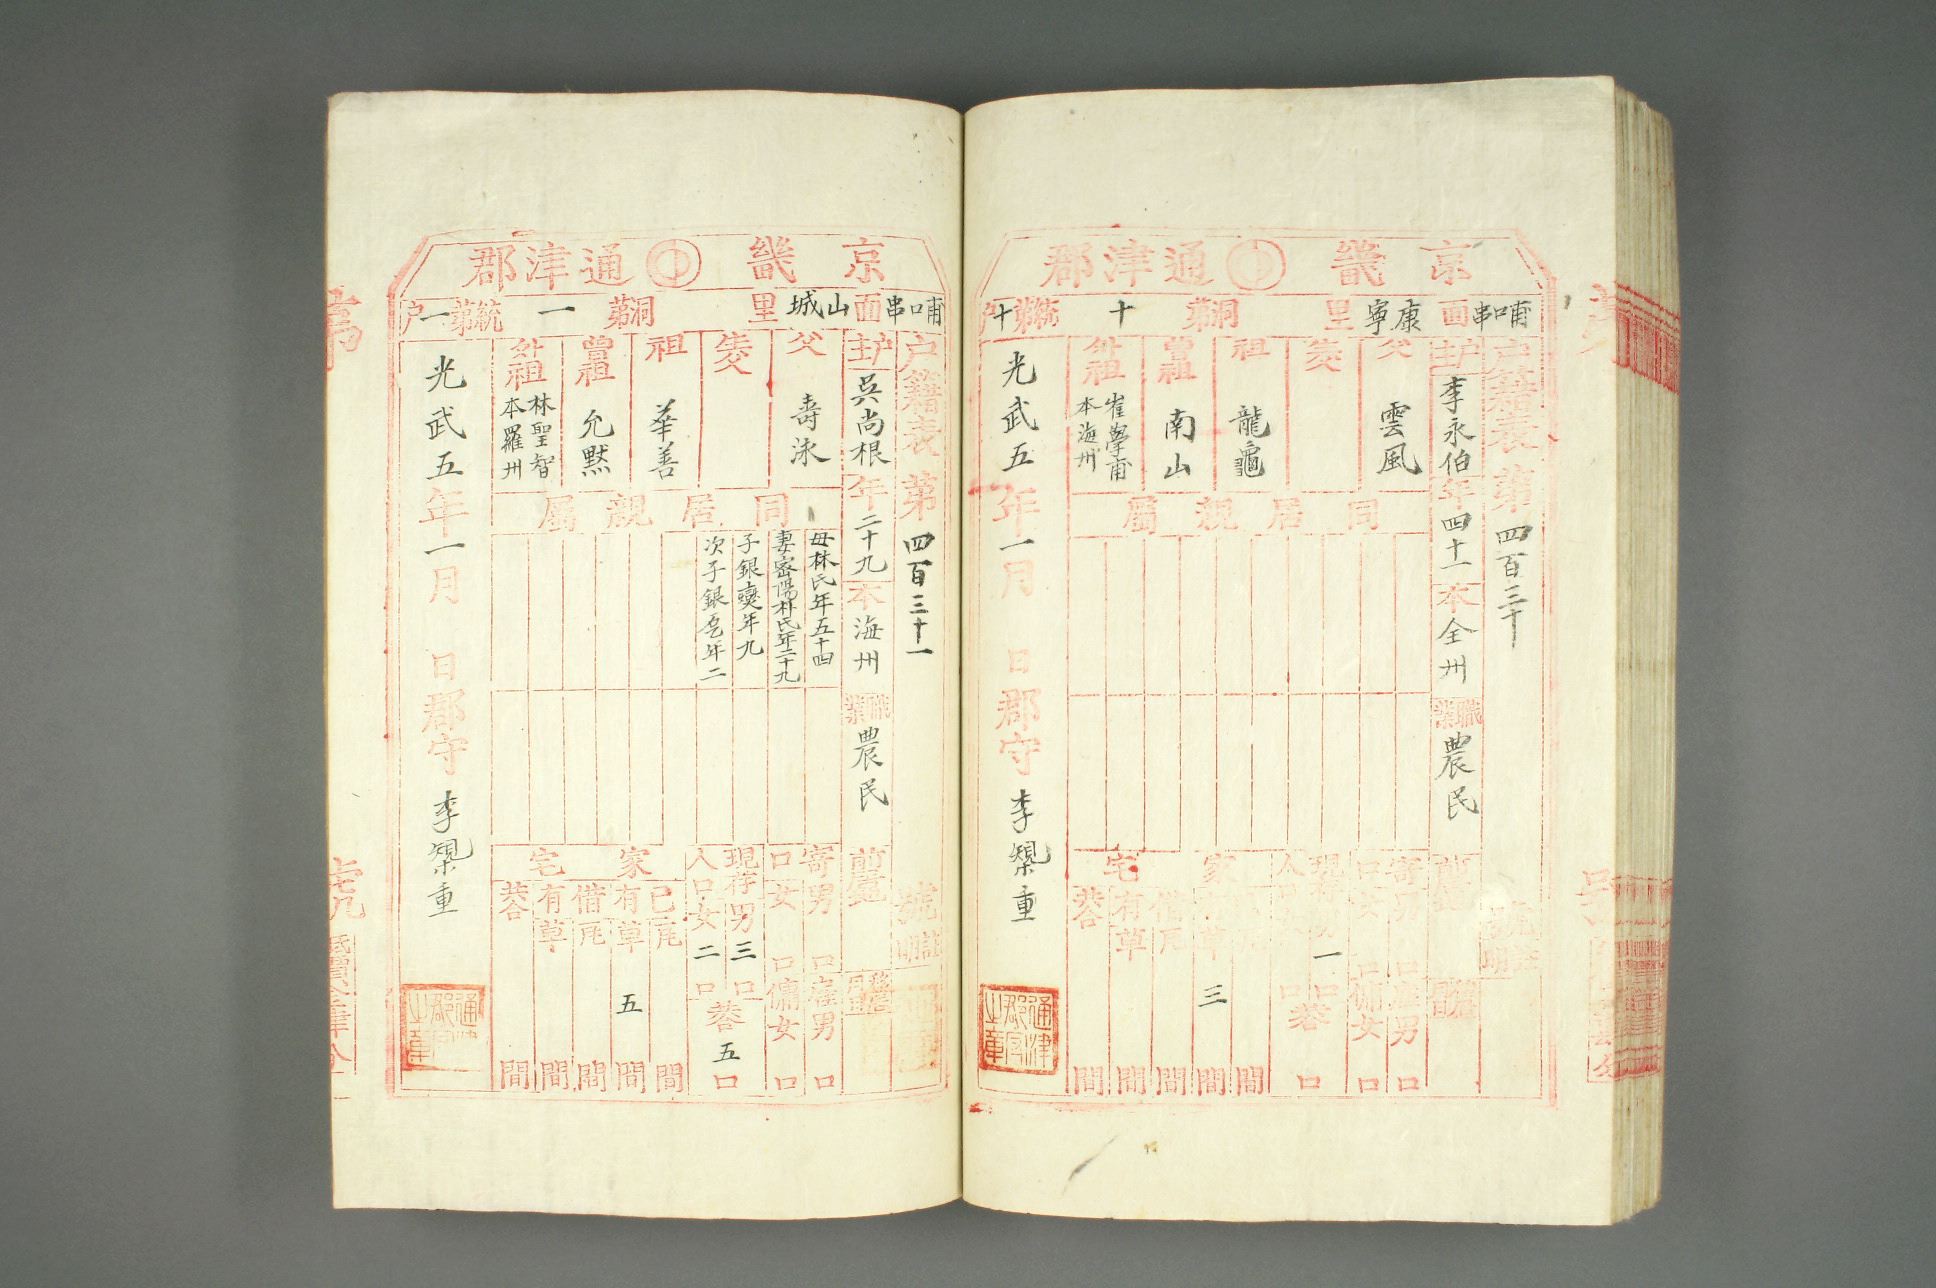 京畿 通津郡
哺口串面 康寧里 第洞 十 第統 十户
户籍表 第四百三十 號
户主 李永伯 年四十一 本全州 職業 農民 前居
父 雲風
生父
祖 龍龜
曾祖 南山
外祖 崔學甫 本海州
同居親屬
寄口 男 口 女 口 雇男 口 傭女 口
現存人口 男 一口 女 口 共 口
家宅 草 三間 借有 瓦 間 草 間 共 間
光武五年一月 日 郡守 李榘重
通津郡守之章
京畿 通津郡
哺口串面 山城里 第洞 一 第統 一户
户籍表 第四百三十一 號
户主 吳尚根 年二十九 本海州 職業 農民 前居
父 壽泳
生父
祖 華善
曾祖 允默
外祖 林聖智 本羅州
同居親屬
母林氏年五十四
妻密陽朴氏年二十九
子銀夑年九
次子銀乭年二
寄口 男 口 女 口 雇男 口 傭女 口
現存人口 男 三口 女 二口 共 五口
家宅 己有 瓦 間 草 五間 借有 瓦 間 草 間 共 間
光武五年一月 日 郡守 李榘重
通津郡守之章